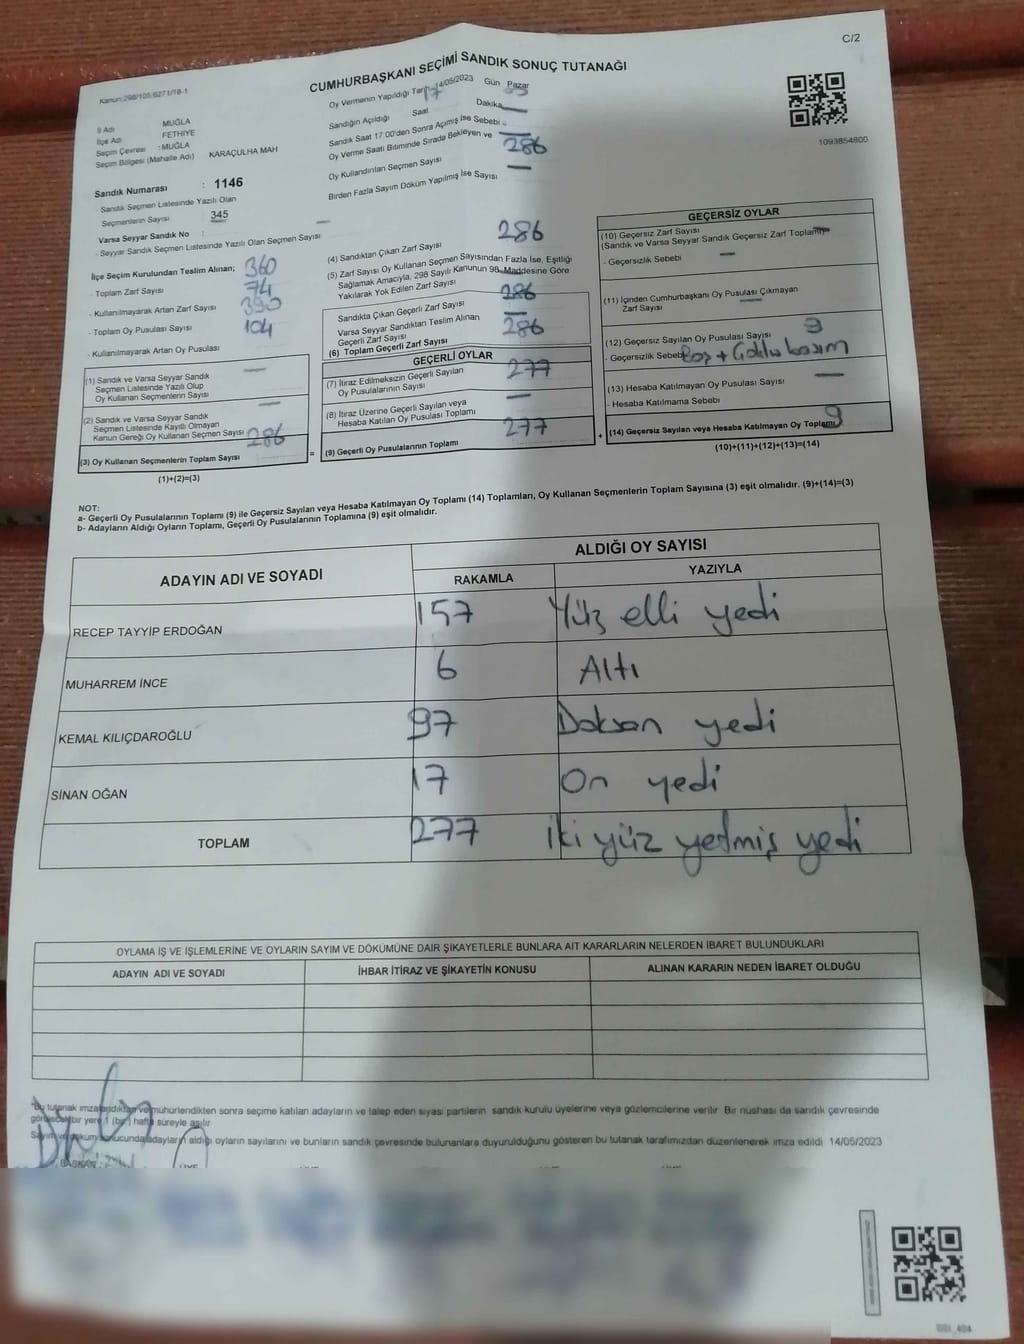 C/2
Kanun:298/105;6271/18-1
CUMHURBAŞKANI SEÇİMİ SANDIK SONUÇ TUTANAĞI
1093854800
İl Adı MUĞLA
İlçe Adı FETHİYE
Seçim Çevresi : MUĞLA
Seçim Bölgesi (Mahalle Adı) KARAÇULHA MAH
Sandık Numarası : 1146
Sandık Seçmen Listesinde Yazılı Olan
Seçmenlerin Sayısı 345
Varsa Seyyar Sandık No :
- Seyyar Sandık Seçmen Listesinde Yazılı Olan Seçmen Sayısı
Oy Vermenin Yapıldığı 14/05/2023 Gün Pazar
Sandığın Açıldığı Saat 17 Dakika
Sandık Saat 17.00'den Sonra Açımış İse Sebebi
Oy Verme Saati Bitiminde Sırada Bekleyen ve
Oy Kullandırılan Seçmen Sayısı 286
Birden Fazla Sayım Döküm Yapılmış İse Sayısı —
İlçe Seçim Kurulundan Teslim Alınan;
- Toplam Zarf Sayısı 360
- Kullanılmayarak Artan Zarf Sayısı 74
- Toplam Oy Pusulası Sayısı 390
- Kullanılmayarak Artan Oy Pusulası 104
(1) Sandık ve Varsa Seyyar Sandık
Seçmen Listesinde Yazılı Olup
Oy Kullanan Seçmenlerin Sayısı —
(2) Sandık ve Varsa Seyyar Sandık
Seçmen Listesinde Kayıtlı Olmayan
Kanun Gereği Oy Kullanan Seçmen Sayısı —
(3) Oy Kullanan Seçmenlerin Toplam Sayısı 286
(1)+(2)=(3)
(4) Sandıktan Çıkan Zarf Sayısı 286
(5) Zarf Sayısı Oy Kullanan Seçmen Sayısından Fazla İse, Eşitliği
Sağlamak Amacıyla, 298 Sayılı Kanunun 98. Maddesine Göre
Yakılarak Yok Edilen Zarf Sayısı —
Sandıkta Çıkan Geçerli Zarf Sayısı 286
Varsa Seyyar Sandıktan Teslim Alınan
Geçerli Zarf Sayısı —
(6) Toplam Geçerli Zarf Sayısı 286
GEÇERLİ OYLAR
(7) İtiraz Edilmeksizin Geçerli Sayılan
Oy Pusulalarının Sayısı 277
(8) İtiraz Üzerine Geçerli Sayılan veya
Hesaba Katılan Oy Pusulası Toplamı —
= (9) Geçerli Oy Pusulalarının Toplamı 277
GEÇERSİZ OYLAR
(10) Geçersiz Zarf Sayısı
(Sandık ve Varsa Seyyar Sandık Geçersiz Zarf Toplamı) —
- Geçersizlik Sebebi —
(11) İçinden Cumhurbaşkanı Oy Pusulası Çıkmayan
Zarf Sayısı —
(12) Geçersiz Sayılan Oy Pusulası Sayısı 9
- Geçersizlik Sebebi Boş + basım
(13) Hesaba Katılmayan Oy Pusulası Sayısı —
- Hesaba Katılmama Sebebi
+ (14) Geçersiz Sayılan veya Hesaba Katılmayan Oy Toplamı 9
(10)+(11)+(12)+(13)=(14)
NOT:
a- Geçerli Oy Pusulalarının Toplamı (9) ile Geçersiz Sayılan veya Hesaba Katılmayan Oy Toplamı (14) Toplamları, Oy Kullanan Seçmenlerin Toplam Sayısına (3) eşit olmalıdır. (9)+(14)=(3)
b- Adayların Aldığı Oyların Toplamı, Geçerli Oy Pusulalarının Toplamına (9) eşit olmalıdır.
ADAYIN ADI VE SOYADI ALDIĞI OY SAYISI
RAKAMLA YAZIYLA
RECEP TAYYİP ERDOĞAN 157 Yüz elli yedi
MUHARREM İNCE 6 Altı
KEMAL KILIÇDAROĞLU 97 Doksan yedi
SİNAN OĞAN 17 On yedi
TOPLAM 277 İki yüz yetmiş yedi
OYLAMA İŞ VE İŞLEMLERİNE VE OYLARIN SAYIM VE DÖKÜMÜNE DAİR ŞİKAYETLERLE BUNLARA AİT KARARLARIN NELERDEN İBARET BULUNDUKLARI
ADAYIN ADI VE SOYADI İHBAR İTİRAZ VE ŞİKAYETİN KONUSU ALINAN KARARIN NEDEN İBARET OLDUĞU
"Bu tutanak imzalandıktan ve mühürlendikten sonra seçime katılan adayların ve talep eden siyasi partilerin sandık kurulu üyelerine veya gözlemcilerine verilir. Bir nüshası da sandık çevresinde
görülecek bir yere 1 (bir) hafta süreyle asılır
Sayım ve döküm sonucunda adayların aldığı oyların sayılarını ve bunların sandık çevresinde bulunanlara duyurulduğunu gösteren bu tutanak tarafımızdan düzenlenerek imza edildi 14/05/2023
BAŞKAN